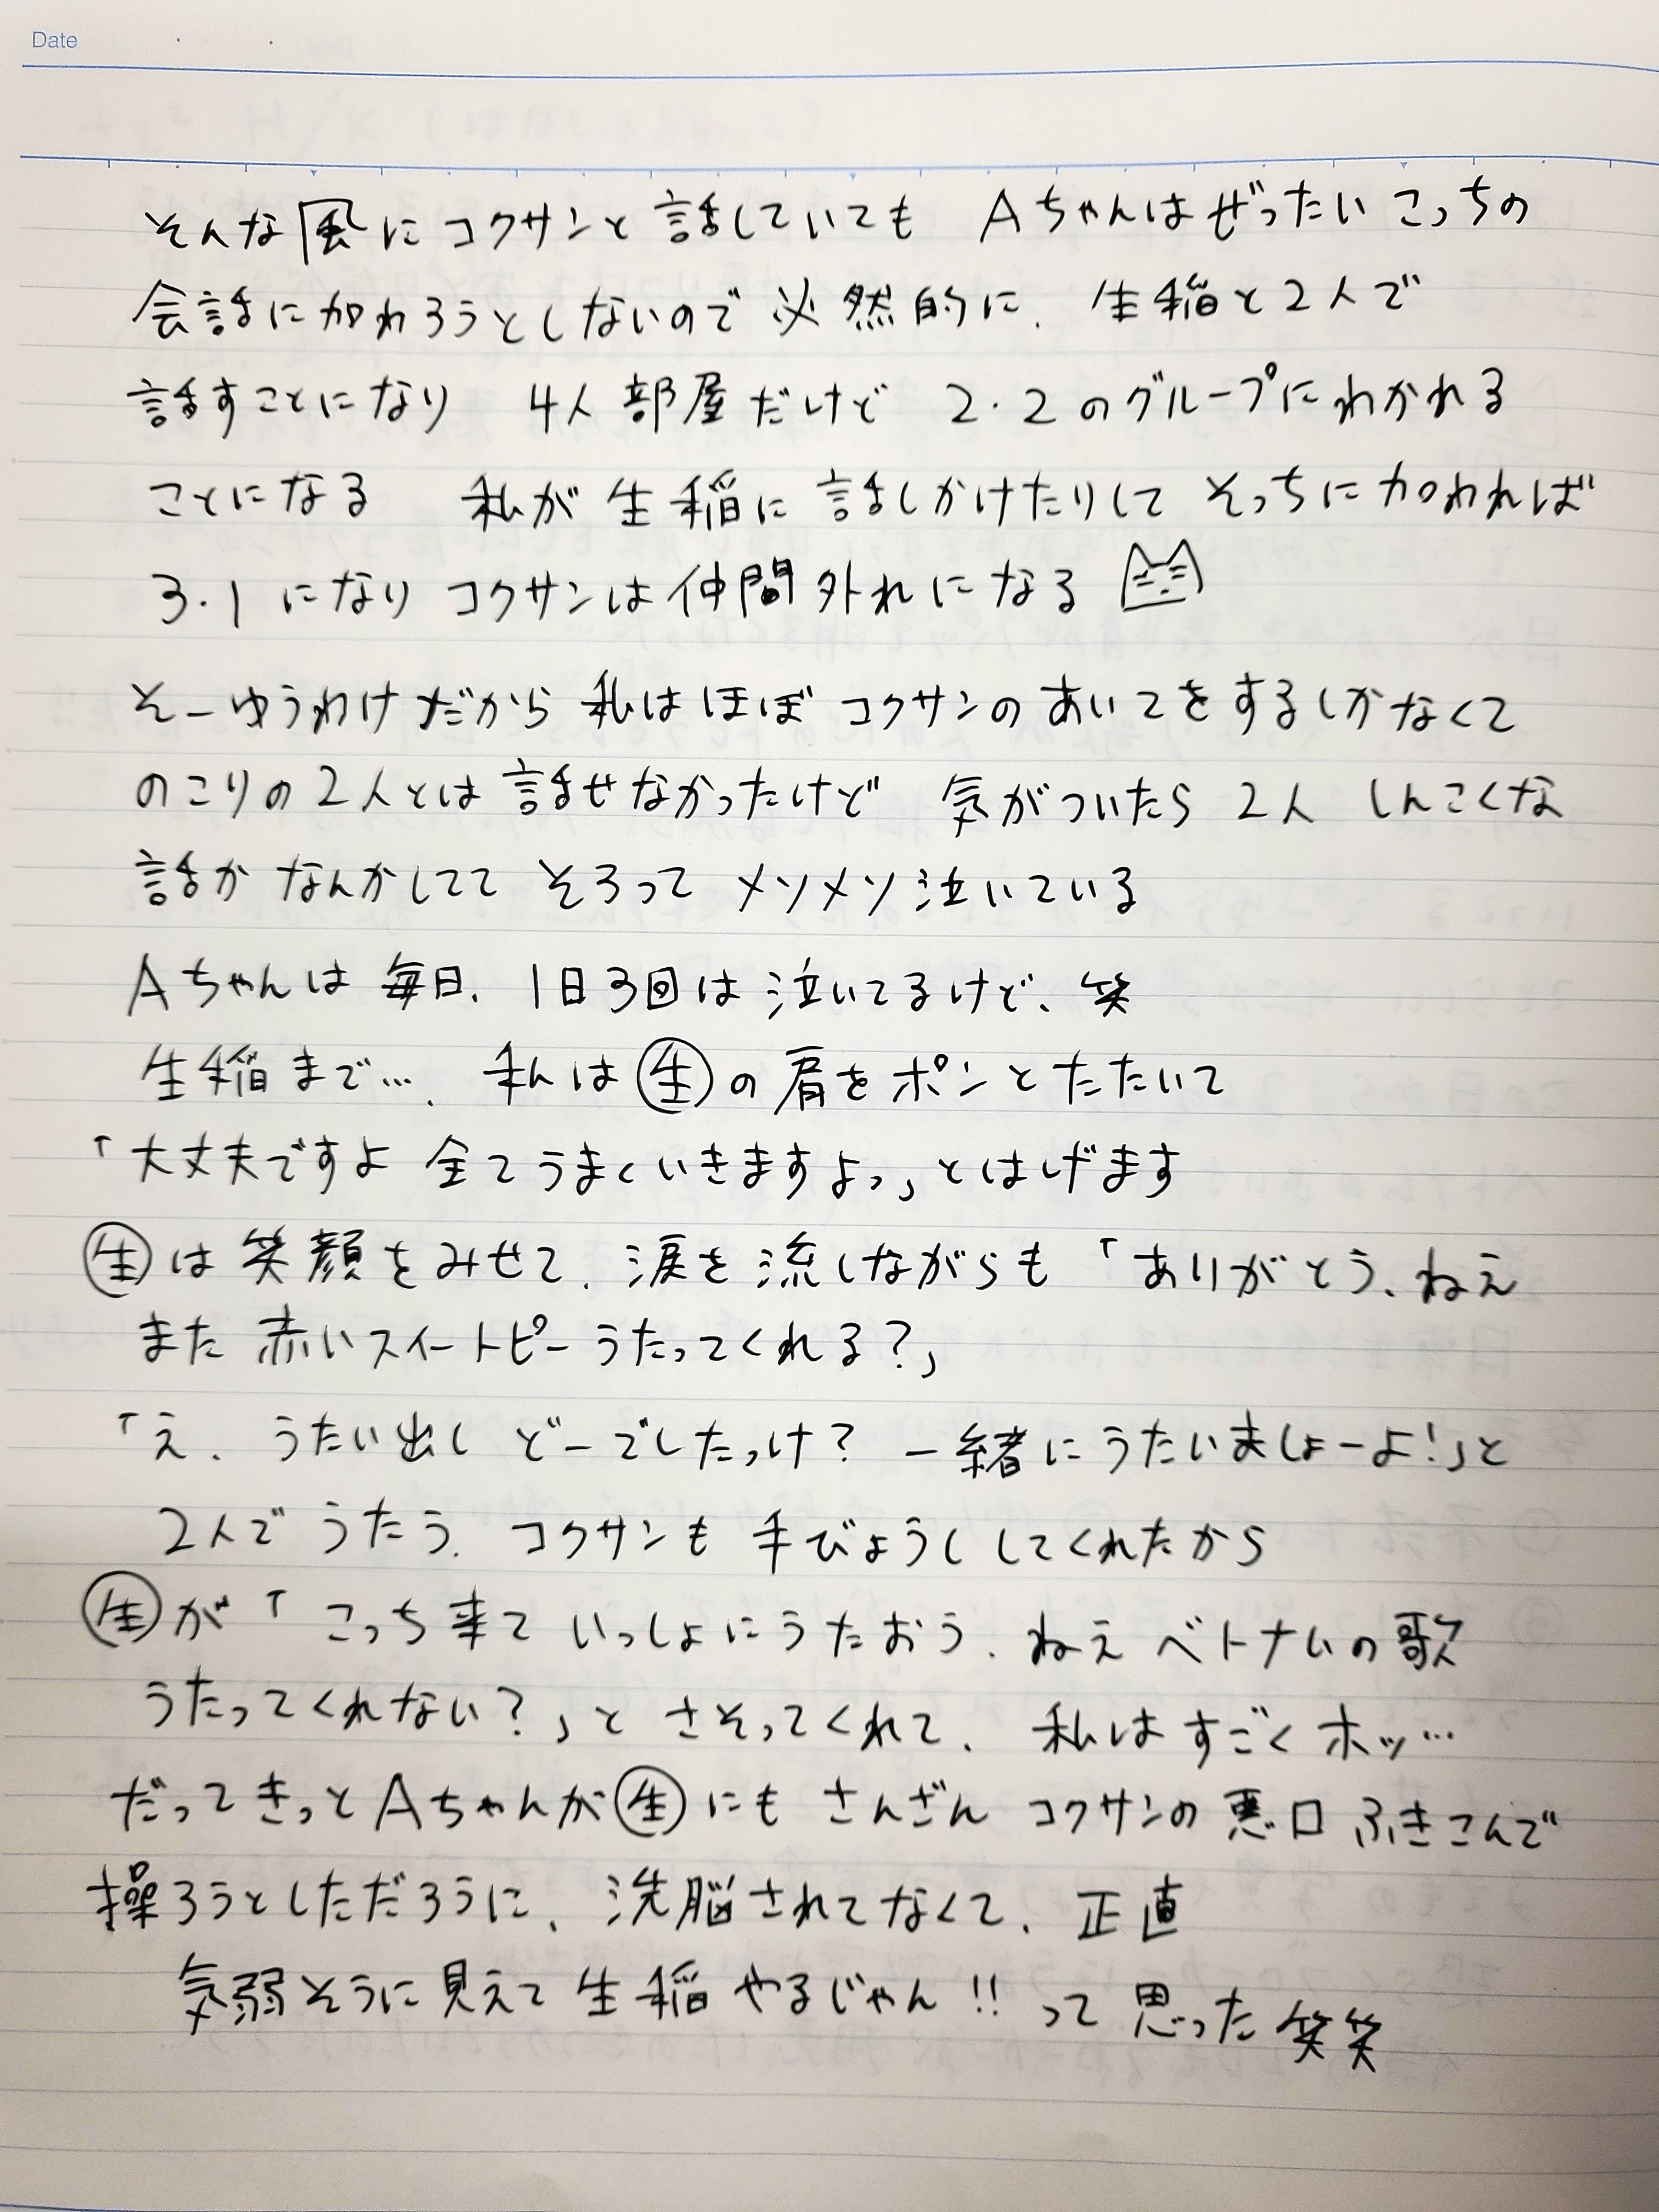 Date
そんな風にコクサンと話していても Aちゃんはぜったいこっちの
会話に加わろうとしないので必然的に、生稲と2人で
話すことになり 4人部屋だけど 2・2のグループにわかれる
ことになる 私が生稲に話しかけたりしてそっちに加われば
3・1になりコクサンは仲間外れになる
そーゆうわけだから私はほぼコクサンのあいてをするしかなくて
のこりの2人とは話せなかったけど 気がついたら2人 しんこくな
話かなんかしてて そろってメソメソ泣いている
Aちゃんは毎日、1日3回は泣いてるけど、笑
生稲まで…、私は生の肩をポンとたたいて
「大丈夫ですよ 全てうまくいきますよっ」とはげます
生は笑顔をみせて、涙を流しながらも「ありがとう、ねえ
また赤いスイートピーうたってくれる?」
「え、うたい出しどーでしたっけ? 一緒にうたいましょーよ!」と
2人でうたう、コクサンも手びょうししてくれたから
生が「こっち来ていっしょにうたおう、ねえベトナムの歌
うたってくれない?」とさそってくれて、私はすごくホッ…
だってきっとAちゃんが生にもさんざんコクサンの悪口ふきこんで
操ろうとしただろうに、洗脳されてなくて、正直
気弱そうに見えて生稲やるじゃん!!って思った笑笑